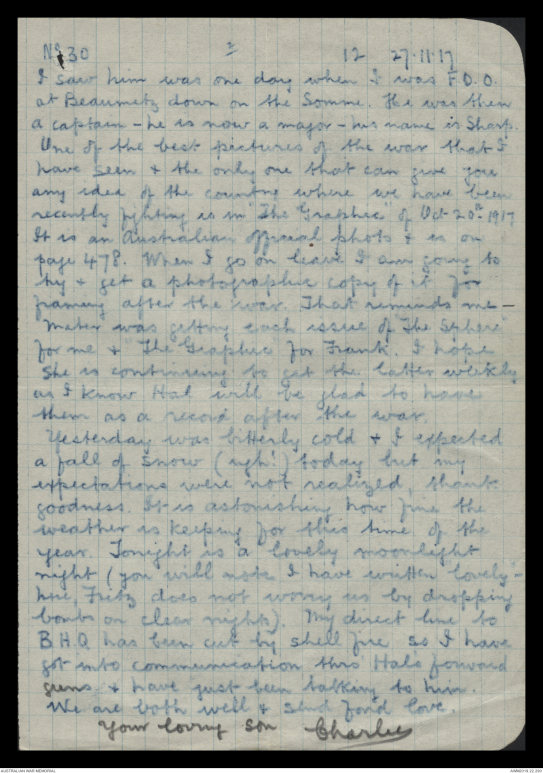 No 30 = 12 27.11.17
I saw him was one day when I was F.O.O.
at Beaumetz down on the Somme. He was then
a captain – he is now a major – his name is Sharp.
One of the best pictures of the war that I
have seen + the only one that can give you
any idea of the country where we have been
recently fighting is in "The Graphic" of Oct 20th 1917
It is an Australian official photo + is on
page 478. When I go on leave I am going to
try + get a photographic copy of it for
framing after the war. That reminds me –
Mater was getting each issue of "The Sphere"
for me + "The Graphic" for Frank. I hope
she is continuing to get the latter weekly
as I know Hal will be glad to have
them as a record after the war.
Yesterday was bitterly cold + I expected
a fall of snow (ugh!) today but my
expectations were not realized, thank
goodness. It is astonishing how fine the
weather is keeping for this time of the
year. Tonight is a lovely moonlight
night (you will note I have written "lovely" –
here, Fritz does not worry us by dropping
bombs on clear nights). My direct line to
B.H.Q has been cut by shell fire so I have
got into communication thro Hal's forward
guns + have just been talking to him.
We are both well + send fond love.
Your loving son Charlie
AUSTRALIAN WAR MEMORIAL